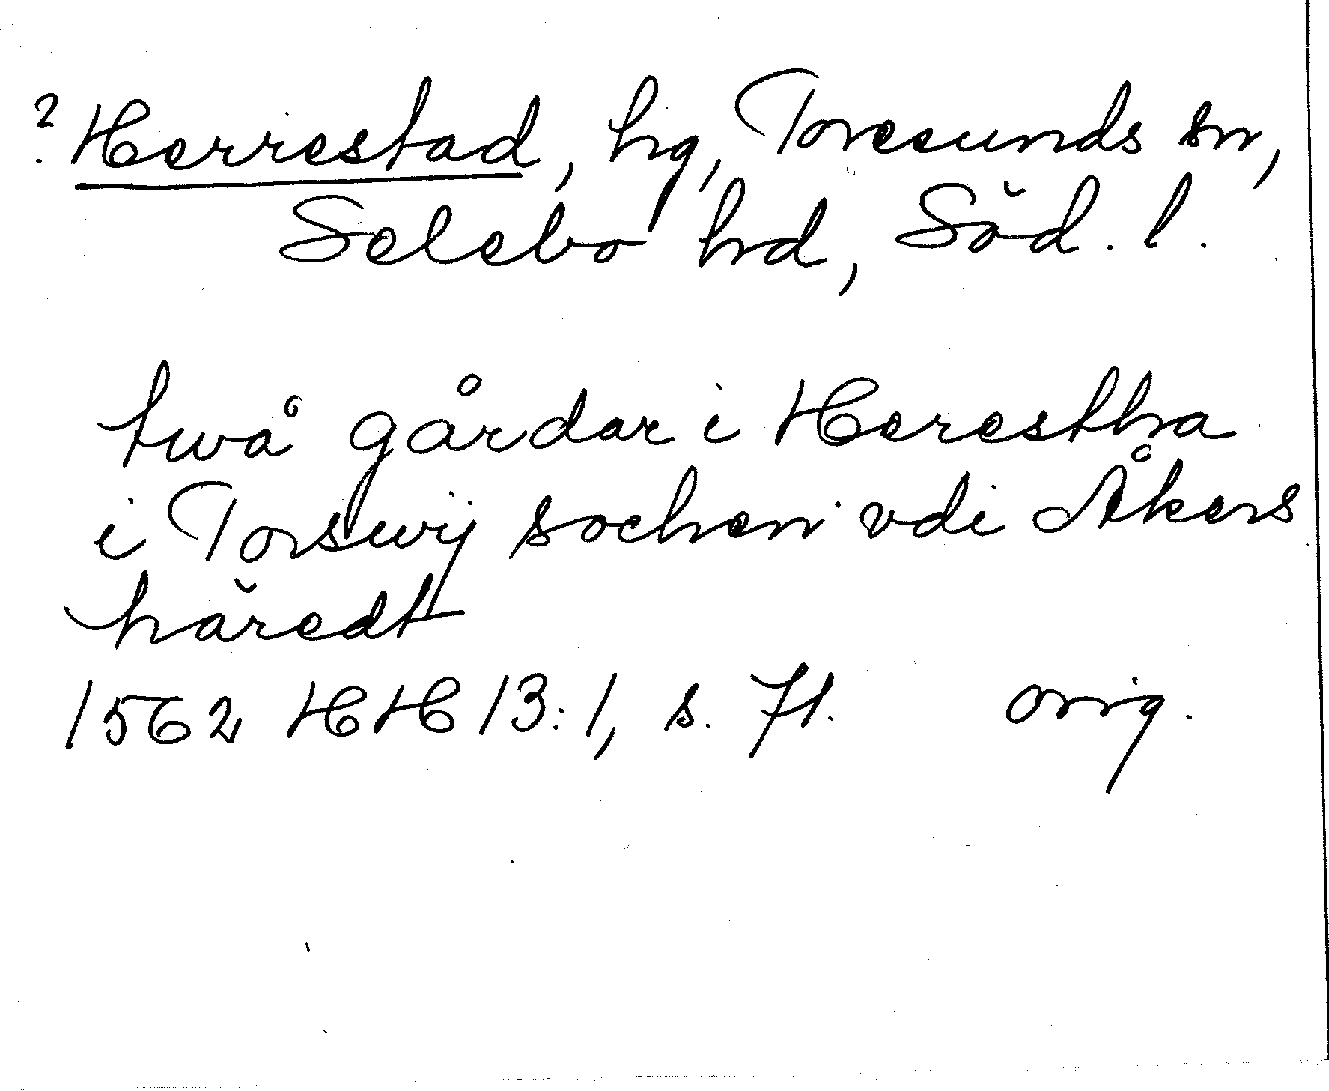 ? Herrestad, hg, Toresunds sn,
Selebo hd, Söd. l.
twå gårdar i Herestha
i Torswij sochen vdi Åkers
häredt
1562 HH 13:1, s. 71. orig.